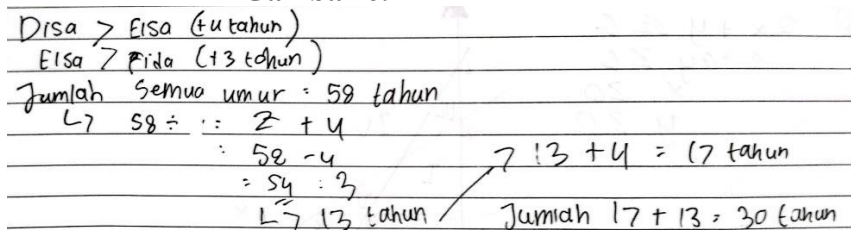 Disa > Elsa (+4 tahun)
Elsa > Fida (+3 tahun)
Jumlah Semua umur : 58 tahun
↳ 58 ÷ : 2 + 4
: 58 - 4
= 54 : 3
↳ 13 tahun
→ 13 + 4 = 17 tahun
Jumlah 17 + 13 = 30 tahun